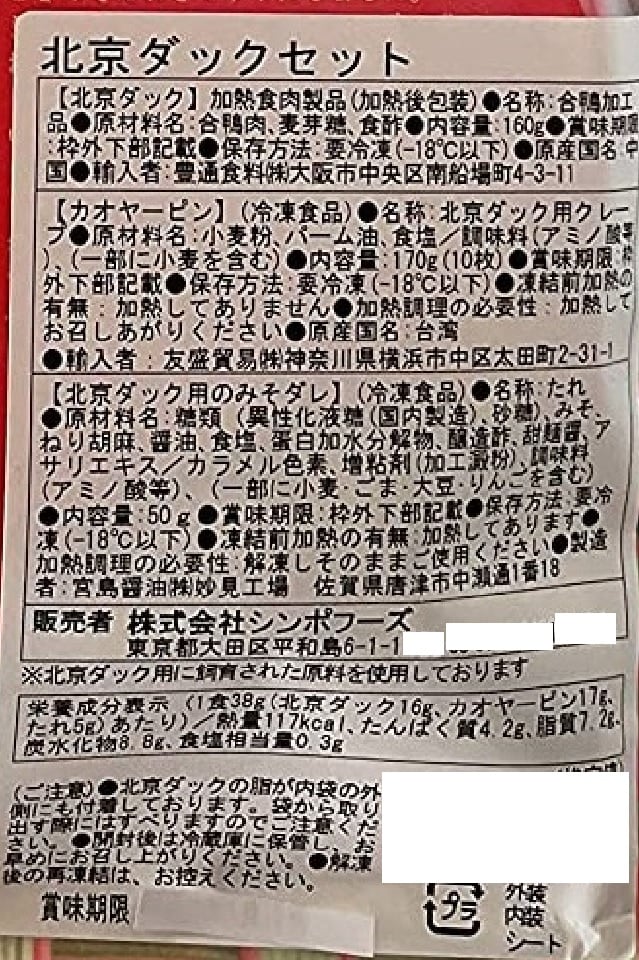 北京ダックセット
【北京ダック】加熱食肉製品(加熱後包装)●名称:合鴨加工
品●原材料名:合鴨肉、麦芽糖、食酢●内容量:160g●賞味期限
:枠外下部記載●保存方法:要冷凍(-18℃以下)●原産国名:中
国●輸入者:豊通食料㈱大阪市中央区南船場町4-3-11
【カオヤーピン】(冷凍食品)●名称:北京ダック用クレー
プ●原材料名:小麦粉、パーム油、食塩/調味料(アミノ酸等
)、(一部に小麦を含む)●内容量:170g(10枚)●賞味期限:枠
外下部記載●保存方法:要冷凍(-18℃以下)●凍結前加熱の
有無:加熱してありません●加熱調理の必要性:加熱して
お召しあがりください●原産国名:台湾
●輸入者:友盛貿易㈱神奈川県横浜市中区太田町2-31-1
【北京ダック用のみそダレ】(冷凍食品)●名称:たれ
●原材料名:糖類(異性化液糖(国内製造)、砂糖)、みそ、
ねり胡麻、醤油、食塩、蛋白加水分解物、醸造酢、甜麺醤、ア
サリエキス/カラメル色素、増粘剤(加工澱粉)、調味料
(アミノ酸等)、(一部に小麦・ごま・大豆・りんごを含む)
●内容量:50g●賞味期限:枠外下部記載●保存方法:要冷
凍(-18℃以下)●凍結前加熱の有無:加熱してあります●
加熱調理の必要性:解凍しそのままご使用ください●製造
者:宮島醤油㈱妙見工場 佐賀県唐津市中瀬通1番18
販売者 株式会社シンポフーズ
東京都大田区平和島6-1-1
※北京ダック用に飼育された原料を使用しております
栄養成分表示 (1食38g(北京ダック16g、カオヤーピン17g、
たれ5g)あたり)/熱量117kcal、たんぱく質4.2g、脂質7.2g、
炭水化物8.8g、食塩相当量0.3g
(ご注意)●北京ダックの脂が内袋の外
側にも付着しております。袋から取り
出す際にはすべりますのでご注意くだ
さい。●開封後は冷蔵庫に保管し、お
早めにお召し上がりください。●解凍
後の再凍結は、お控えください。
賞味期限
プラ
外装
内装
シート